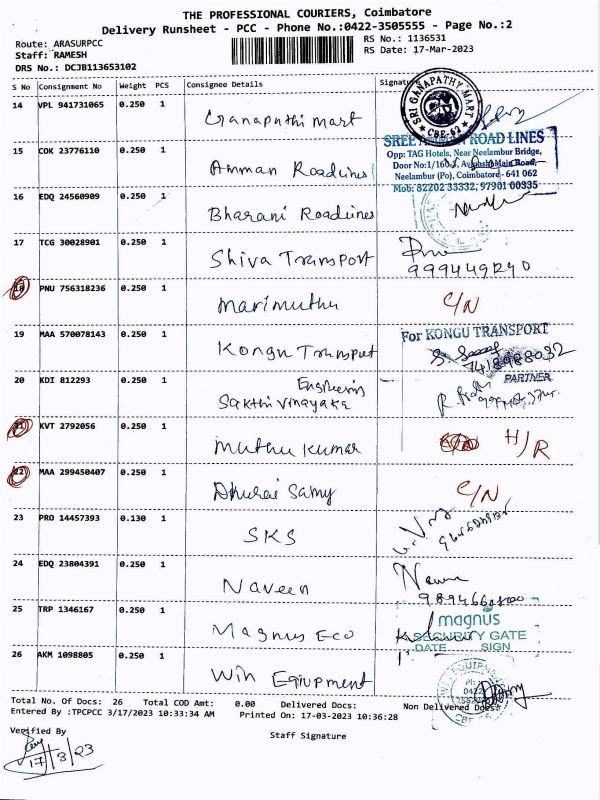 THE PROFESSIONAL COURIERS, Coimbatore
Delivery Runsheet - PCC - Phone No.:0422-3505555 - Page No.:2
Route: ARASURPCC RS No.: 1136531
Staff: RAMESH RS Date: 17-Mar-2023
DRS No.: DCJB113653102
S No Consignment No Weight PCS Consignee Details Signature
14 VPL 941731065 0.250 1 Ganapathi Mart SRI GANAPATHY MART CBE-62
15 COK 23776110 0.250 1 Amman Roadlines
SREE AMMAN ROAD LINES
Opp: TAG Hotels, Near Neelambur Bridge,
Door No:1/160.3, Avinashi Main Road,
Neelambur (Po), Coimbatore - 641 062
Mob: 82202 33332, 97901 00335
16 EDQ 24560909 0.250 1 Bharani Roadlines
17 TCG 30028901 0.250 1 Shiva Transport
18 PNU 756318236 0.250 1 Marimuthu C/N
19 MAA 570078143 0.250 1 Kongu Transput For KONGU TRANSPORT
PARTNER
20 KDI 812293 0.250 1 Sakthi Vinayaka Engineering
21 KVT 2792056 0.250 1 Muthu Kumar H/R
22 MAA 299450407 0.250 1 Dhurai Samy C/N
23 PRO 14457393 0.130 1 SKS
24 EDQ 23804391 0.250 1 Naveen
25 TRP 1346167 0.250 1 Magnus Eco magnus
SECURITY GATE
DATE SIGN
26 AKM 1098805 0.250 1 Win Equipment
Total No. Of Docs: 26 Total COD Amt: 0.00 Delivered Docs: Non Delivered Docs:
Entered By :TPCPCC 3/17/2023 10:33:34 AM Printed On: 17-03-2023 10:36:28
Verified By Staff Signature
17/3/23